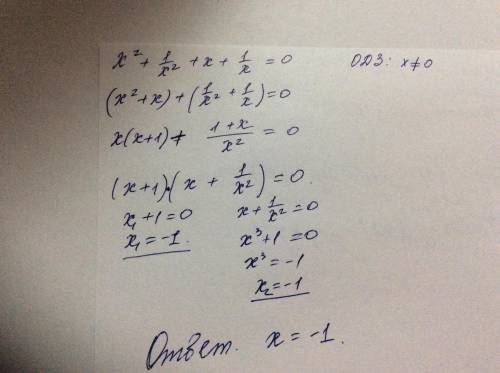 x² + 1/x² + x + 1/x = 0    ОДЗ: x ≠ 0
(x² + x) + (1/x² + 1/x) = 0
x(x+1) + (1+x)/x² = 0
(x+1)·(x + 1/x²) = 0.
x₁ + 1 = 0    x + 1/x² = 0
x₁ = -1.    x³ + 1 = 0
x³ = -1
x₂ = -1
Ответ. x = -1.